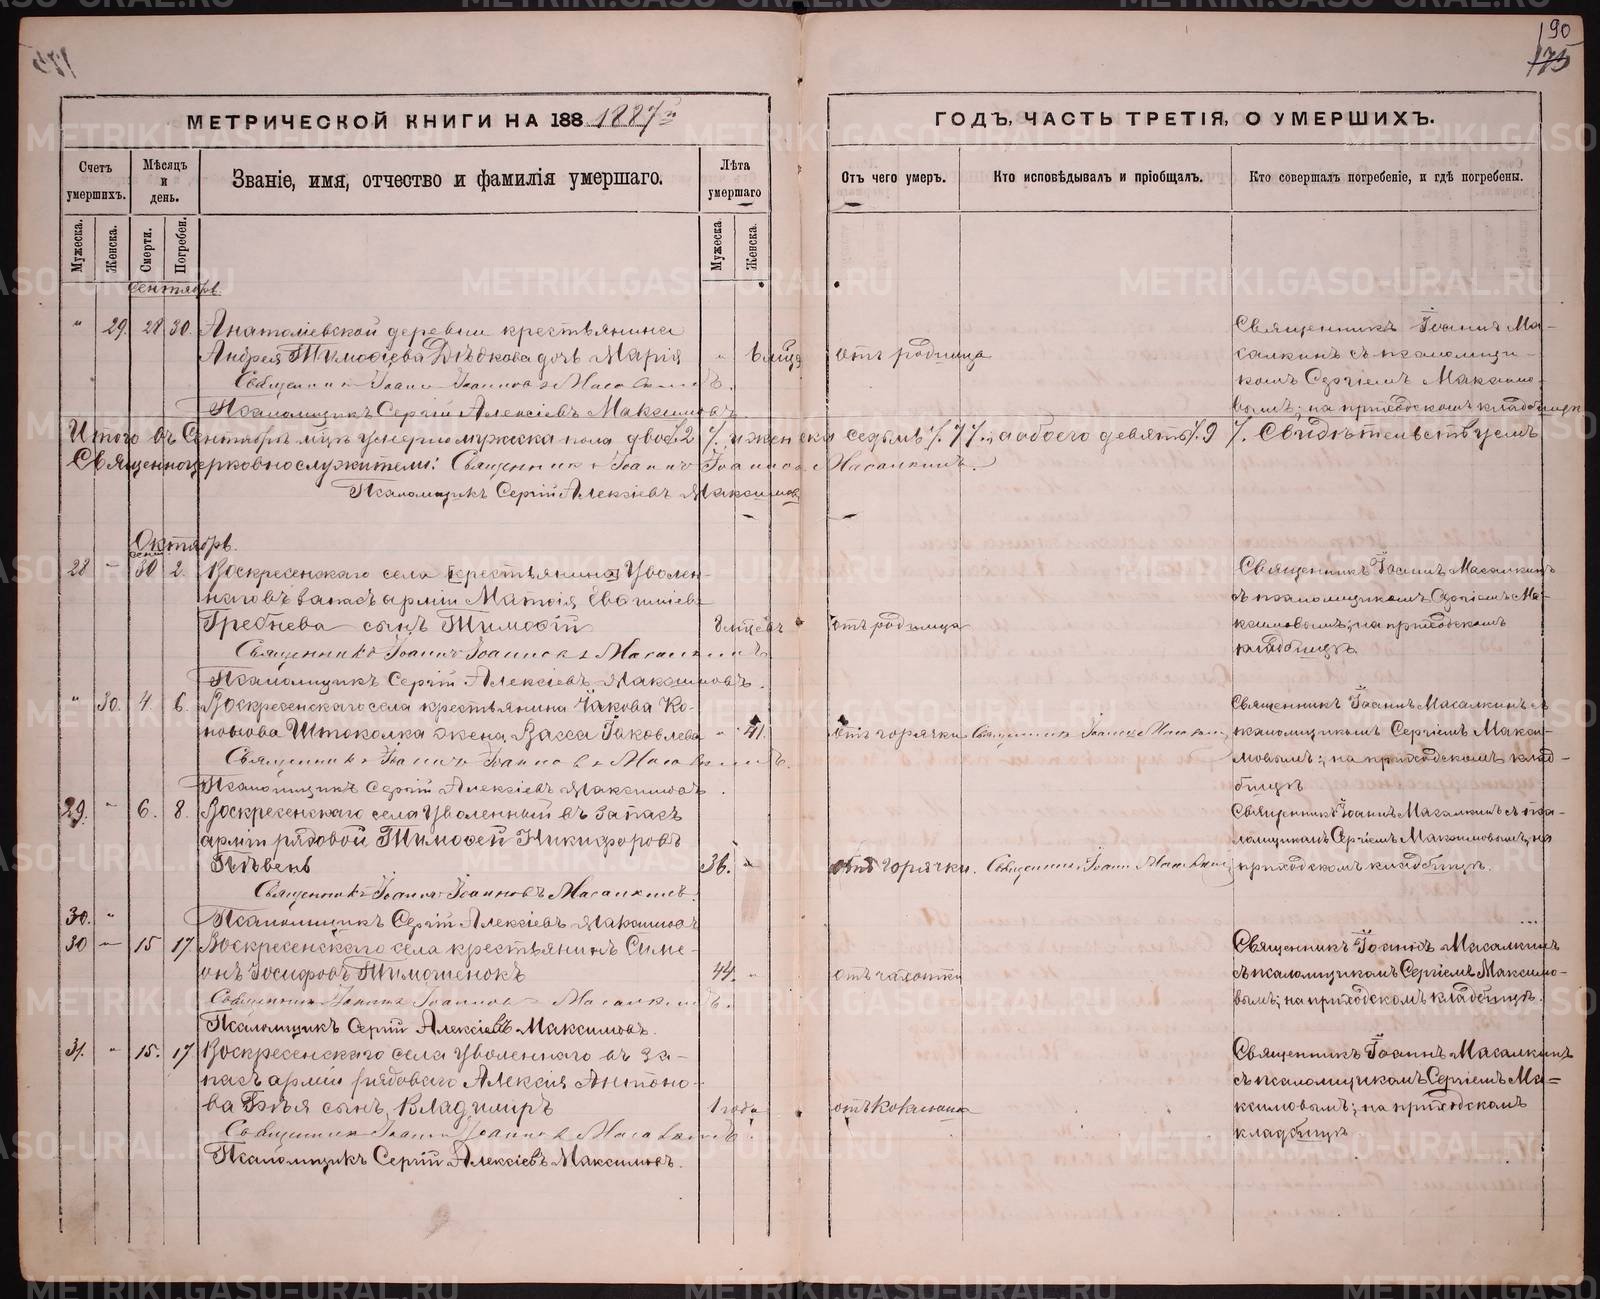 190
175
МЕТРИЧЕСКОЙ КНИГИ НА 188 1887й
ГОДЪ, ЧАСТЬ ТРЕТІЯ, О УМЕРШИХЪ.
Счетъ умершихъ.
Мѣсяцъ и день.
Званіе, имя, отчество и фамилія умершаго.
Лѣта умершаго
Отъ чего умеръ.
Кто исповѣдывалъ и пріобщалъ.
Кто совершалъ погребеніе, и гдѣ погребены.
Мужеска.
Женска.
Смерти.
Погребен.
Мужеска.
Женска.
Сентябрь.
" 29. 28 30. Анатоліевской деревни крестьянина
Андрея Тимофіева Дѣдкова дочь Марія " отъ родимца
Священникъ Іоаннъ Іоанновъ Масалкинъ.
Псаломщикъ Сергій Алексіевъ Максимовъ
Священникъ Іоаннъ Ма-
салкинъ съ псаломщи-
комъ Сергіемъ Максимо-
вымъ; на приходскомъ кладбищѣ
Итого въ Сентябрѣ мцѣ умерло мужеска пола два /.2 /. женска седьмь /.7 /. а обоего девять /.9 /. Свидѣтельствуемъ
Священноцерковнослужители: Священникъ Іоаннъ Іоанновъ Масалкинъ.
Псаломщикъ Сергій Алексіевъ Максимовъ
Октябрь.
28 – 30 2. Воскресенскаго села [крестьянина] уволен-
наго въ запасъ арміи Матфія Евфиміева
Гребнева сынъ Тимофій отъ родимца
Священникъ Іоаннъ Іоанновъ Масалкинъ
Псаломщикъ Сергій Алексіевъ Максимовъ.
Священникъ Іоаннъ Масалкинъ
съ псаломщикомъ Сергіемъ Ма-
ксимовымъ; на приходскомъ
кладбищѣ
" 30. 4. 6. Воскресенскаго села крестьянина Іакова Ко-
нонова Штоколка жена Васса Іаковлева " 41. отъ горячки Священникъ Іоаннъ Масалкинъ
Священникъ Іоаннъ Іоанновъ Масалкинъ.
Псаломщикъ Сергій Алексіевъ Максимовъ.
Священникъ Іоаннъ Масалкинъ съ
псаломщикомъ Сергіемъ Макси-
мовымъ; на приходскомъ клад-
бищѣ
29. " 6. 8. Воскресенскаго села уволенный въ запасъ
арміи рядовой Тимофей Никифоровъ
Пѣвень 36. " отъ горячки. Священникъ Іоаннъ Масалкинъ
Священникъ Іоаннъ Іоанновъ Масалкинъ.
30. " Псаломщикъ Сергій Алексіевъ Максимовъ
Священникъ Іоаннъ Масалкинъ съ пса-
ломщикомъ Сергіемъ Максимовымъ; на
приходскомъ кладбищѣ.
30 – 15 17. Воскресенскаго села крестьянинъ Симе-
онъ Іосифовъ Тимошенокъ 44. " отъ чахотки
Священникъ Іоаннъ Іоанновъ Масалкинъ.
Псаломщикъ Сергій Алексіевъ Максимовъ.
Священникъ Іоаннъ Масалкинъ
съ псаломщикомъ Сергіемъ Максимо-
вымъ; на приходскомъ кладбищѣ.
31. " 15. 17 Воскресенскаго села уволеннаго въ за-
пасъ арміи рядоваго Алексія Антоно-
ва сынъ Владимиръ 1 года отъ коклюша
Священникъ Іоаннъ Іоанновъ Масалкинъ.
Псаломщикъ Сергій Алексіевъ Максимовъ.
Священникъ Іоаннъ Масалкинъ
съ псаломщикомъ Сергіемъ Ма=
ксимовымъ; на приходскомъ
кладбищѣ
METRIKI.GASO-URAL.RU